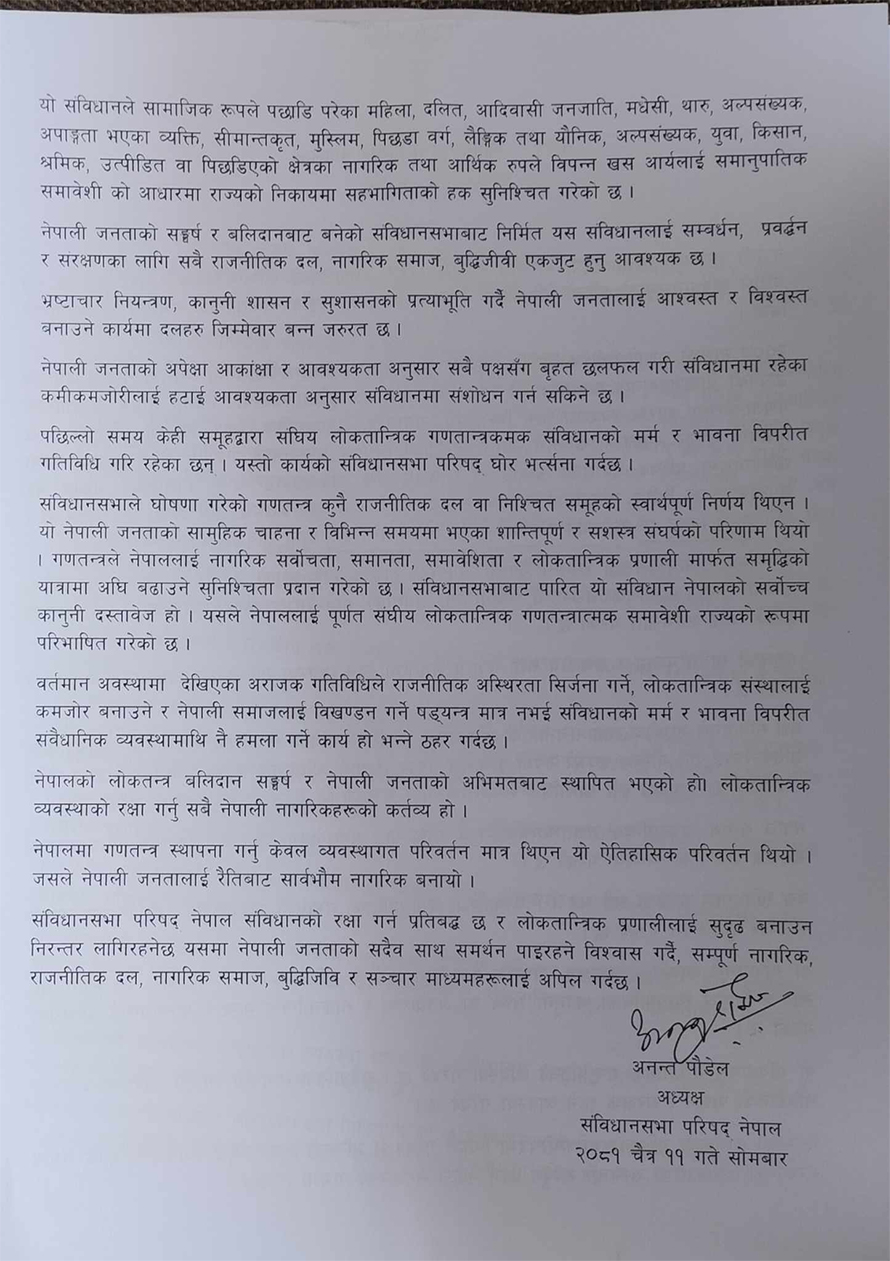 यो संविधानले सामाजिक रूपले पछाडि परेका महिला, दलित, आदिवासी जनजाति, मधेसी, थारु, अल्पसंख्यक,
अपाङ्गता भएका व्यक्ति, सीमान्तकृत, मुस्लिम, पिछडा वर्ग, लैङ्गिक तथा यौनिक, अल्पसंख्यक, युवा, किसान,
श्रमिक, उत्पीडित वा पिछडिएको क्षेत्रका नागरिक तथा आर्थिक रुपले विपन्न खस आर्यलाई समानुपातिक
समावेशी को आधारमा राज्यको निकायमा सहभागिताको हक सुनिश्चित गरेको छ ।
नेपाली जनताको सङ्घर्ष र बलिदानबाट बनेको संविधानसभाबाट निर्मित यस संविधानलाई सम्बर्धन, प्रवर्द्धन
र संरक्षणका लागि सबै राजनीतिक दल, नागरिक समाज, बुद्धिजीवी एकजुट हुनु आवश्यक छ ।
भ्रष्टाचार नियन्त्रण, कानुनी शासन र सुशासनको प्रत्याभूति गर्दै नेपाली जनतालाई आश्वस्त र विश्वस्त
बनाउने कार्यमा दलहरु जिम्मेवार बन्न जरुरत छ ।
नेपाली जनताको अपेक्षा आकांक्षा र आवश्यकता अनुसार सबै पक्षसँग बृहत छलफल गरी संविधानमा रहेका
कमीकमजोरीलाई हटाई आवश्यकता अनुसार संविधानमा संशोधन गर्न सकिने छ ।
पछिल्लो समय केही समूहद्वारा संघिय लोकतान्त्रिक गणतान्त्रकमक संविधानको मर्म र भावना विपरीत
गतिविधि गरि रहेका छन् । यस्तो कार्यको संविधानसभा परिषद् घोर भर्त्सना गर्दछ ।
संविधानसभाले घोषणा गरेको गणतन्त्र कुनै राजनीतिक दल वा निश्चित समूहको स्वार्थपूर्ण निर्णय थिएन ।
यो नेपाली जनताको सामुहिक चाहना र विभिन्न समयमा भएका शान्तिपूर्ण र सशस्त्र संघर्षको परिणाम थियो
। गणतन्त्रले नेपाललाई नागरिक सर्वोचता, समानता, समावेशिता र लोकतान्त्रिक प्रणाली मार्फत समृद्धिको
यात्रामा अघि बढाउने सुनिश्चिता प्रदान गरेको छ । संविधानसभाबाट पारित यो संविधान नेपालको सर्वोच्च
कानुनी दस्तावेज हो । यसले नेपाललाई पूर्णत संघीय लोकतान्त्रिक गणतन्त्रात्मक समावेशी राज्यको रूपमा
परिभाषित गरेको छ ।
वर्तमान अवस्थामा देखिएका अराजक गतिविधिले राजनीतिक अस्थिरता सिर्जना गर्ने, लोकतान्त्रिक संस्थालाई
कमजोर बनाउने र नेपाली समाजलाई विखण्डन गर्ने षड्यन्त्र मात्र नभई संविधानको मर्म र भावना विपरीत
संवैधानिक व्यवस्थामाथि नै हमला गर्ने कार्य हो भन्ने ठहर गर्दछ ।
नेपालको लोकतन्त्र बलिदान सङ्घर्ष र नेपाली जनताको अभिमतबाट स्थापित भएको हो। लोकतान्त्रिक
व्यवस्थाको रक्षा गर्नु सबै नेपाली नागरिकहरूको कर्तव्य हो ।
नेपालमा गणतन्त्र स्थापना गर्नु केवल व्यवस्थागत परिवर्तन मात्र थिएन यो ऐतिहासिक परिवर्तन थियो ।
जसले नेपाली जनतालाई रैतिबाट सार्वभौम नागरिक बनायो ।
संविधानसभा परिषद् नेपाल संविधानको रक्षा गर्न प्रतिबद्ध छ र लोकतान्त्रिक प्रणालीलाई सुदृढ बनाउन
निरन्तर लागिरहनेछ यसमा नेपाली जनताको सदैव साथ समर्थन पाइरहने विश्वास गर्दै, सम्पूर्ण नागरिक,
राजनीतिक दल, नागरिक समाज, बुद्धिजिवि र सञ्चार माध्यमहरूलाई अपिल गर्दछ ।
अनन्त पौडेल
अध्यक्ष
संविधानसभा परिषद् नेपाल
२०८१ चैत्र ११ गते सोमबार